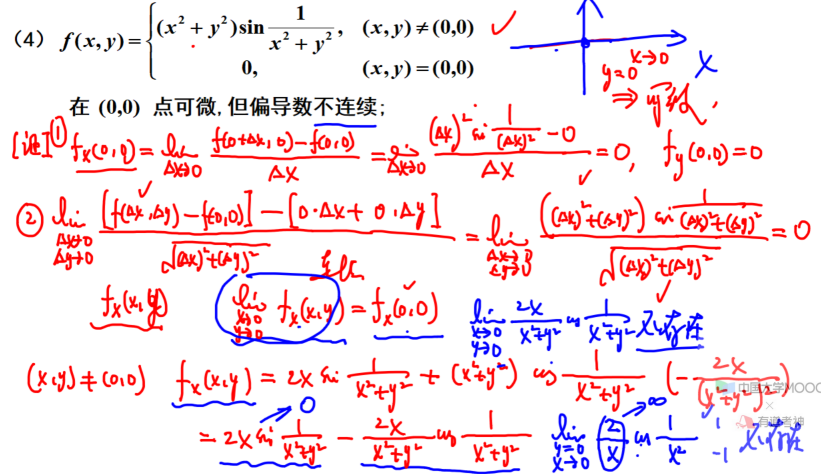 (4) f(x,y) = { (x²+y²)sin 1/(x²+y²), (x,y)≠(0,0) ✓
0, (x,y)=(0,0)
x→0
y=0
X
在 (0,0) 点可微,但偏导数不连续;
[证] ① fx(0,0) = lim Δx→0 [f(0+Δx,0)-f(0,0)]/Δx = lim Δx→0 [(Δx)² sin 1/(Δx)² - 0]/Δx = 0, fy(0,0)=0
② lim Δx→0 Δy→0 {[f(Δx,Δy)-f(0,0)]-[0·Δx+0·Δy]}/√((Δx)²+(Δy)²) = lim Δx→0 Δy→0 [((Δx)²+(Δy)²) sin 1/((Δx)²+(Δy)²)]/√((Δx)²+(Δy)²) = 0
fx(x,y) lim x→0 y→0 fx(x,y) = fx(0,0) lim x→0 y→0 2x/(x²+y²) cos 1/(x²+y²) 不存在
(x,y)≠(0,0) fx(x,y) = 2x sin 1/(x²+y²) + (x²+y²) cos 1/(x²+y²) (-2x/(x²+y²)²)
中国大学MOOC
×
有道考神
0 ∞
= 2x sin 1/(x²+y²) - 2x/(x²+y²) cos 1/(x²+y²) lim y=0 x→0 2/x cos 1/x² 1 -1 不存在